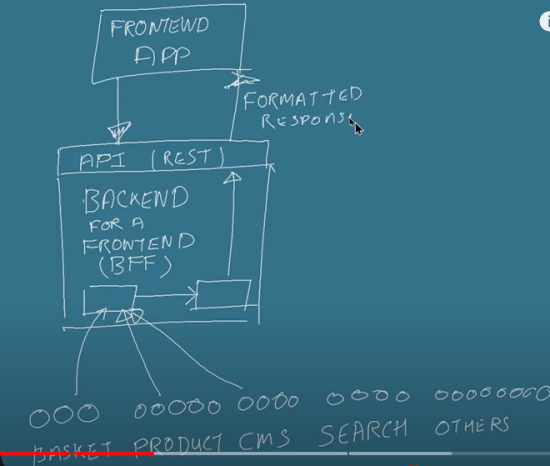 FRONTEND
APP
FORMATTED
RESPONS
API (REST)
BACKEND
FOR A
FRONTEND
(BFF)
BASKET PRODUCT CMS SEARCH OTHERS